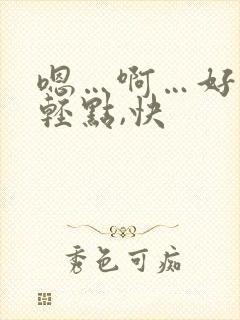 嗯…啊…好
輕點,快
秀色可痴